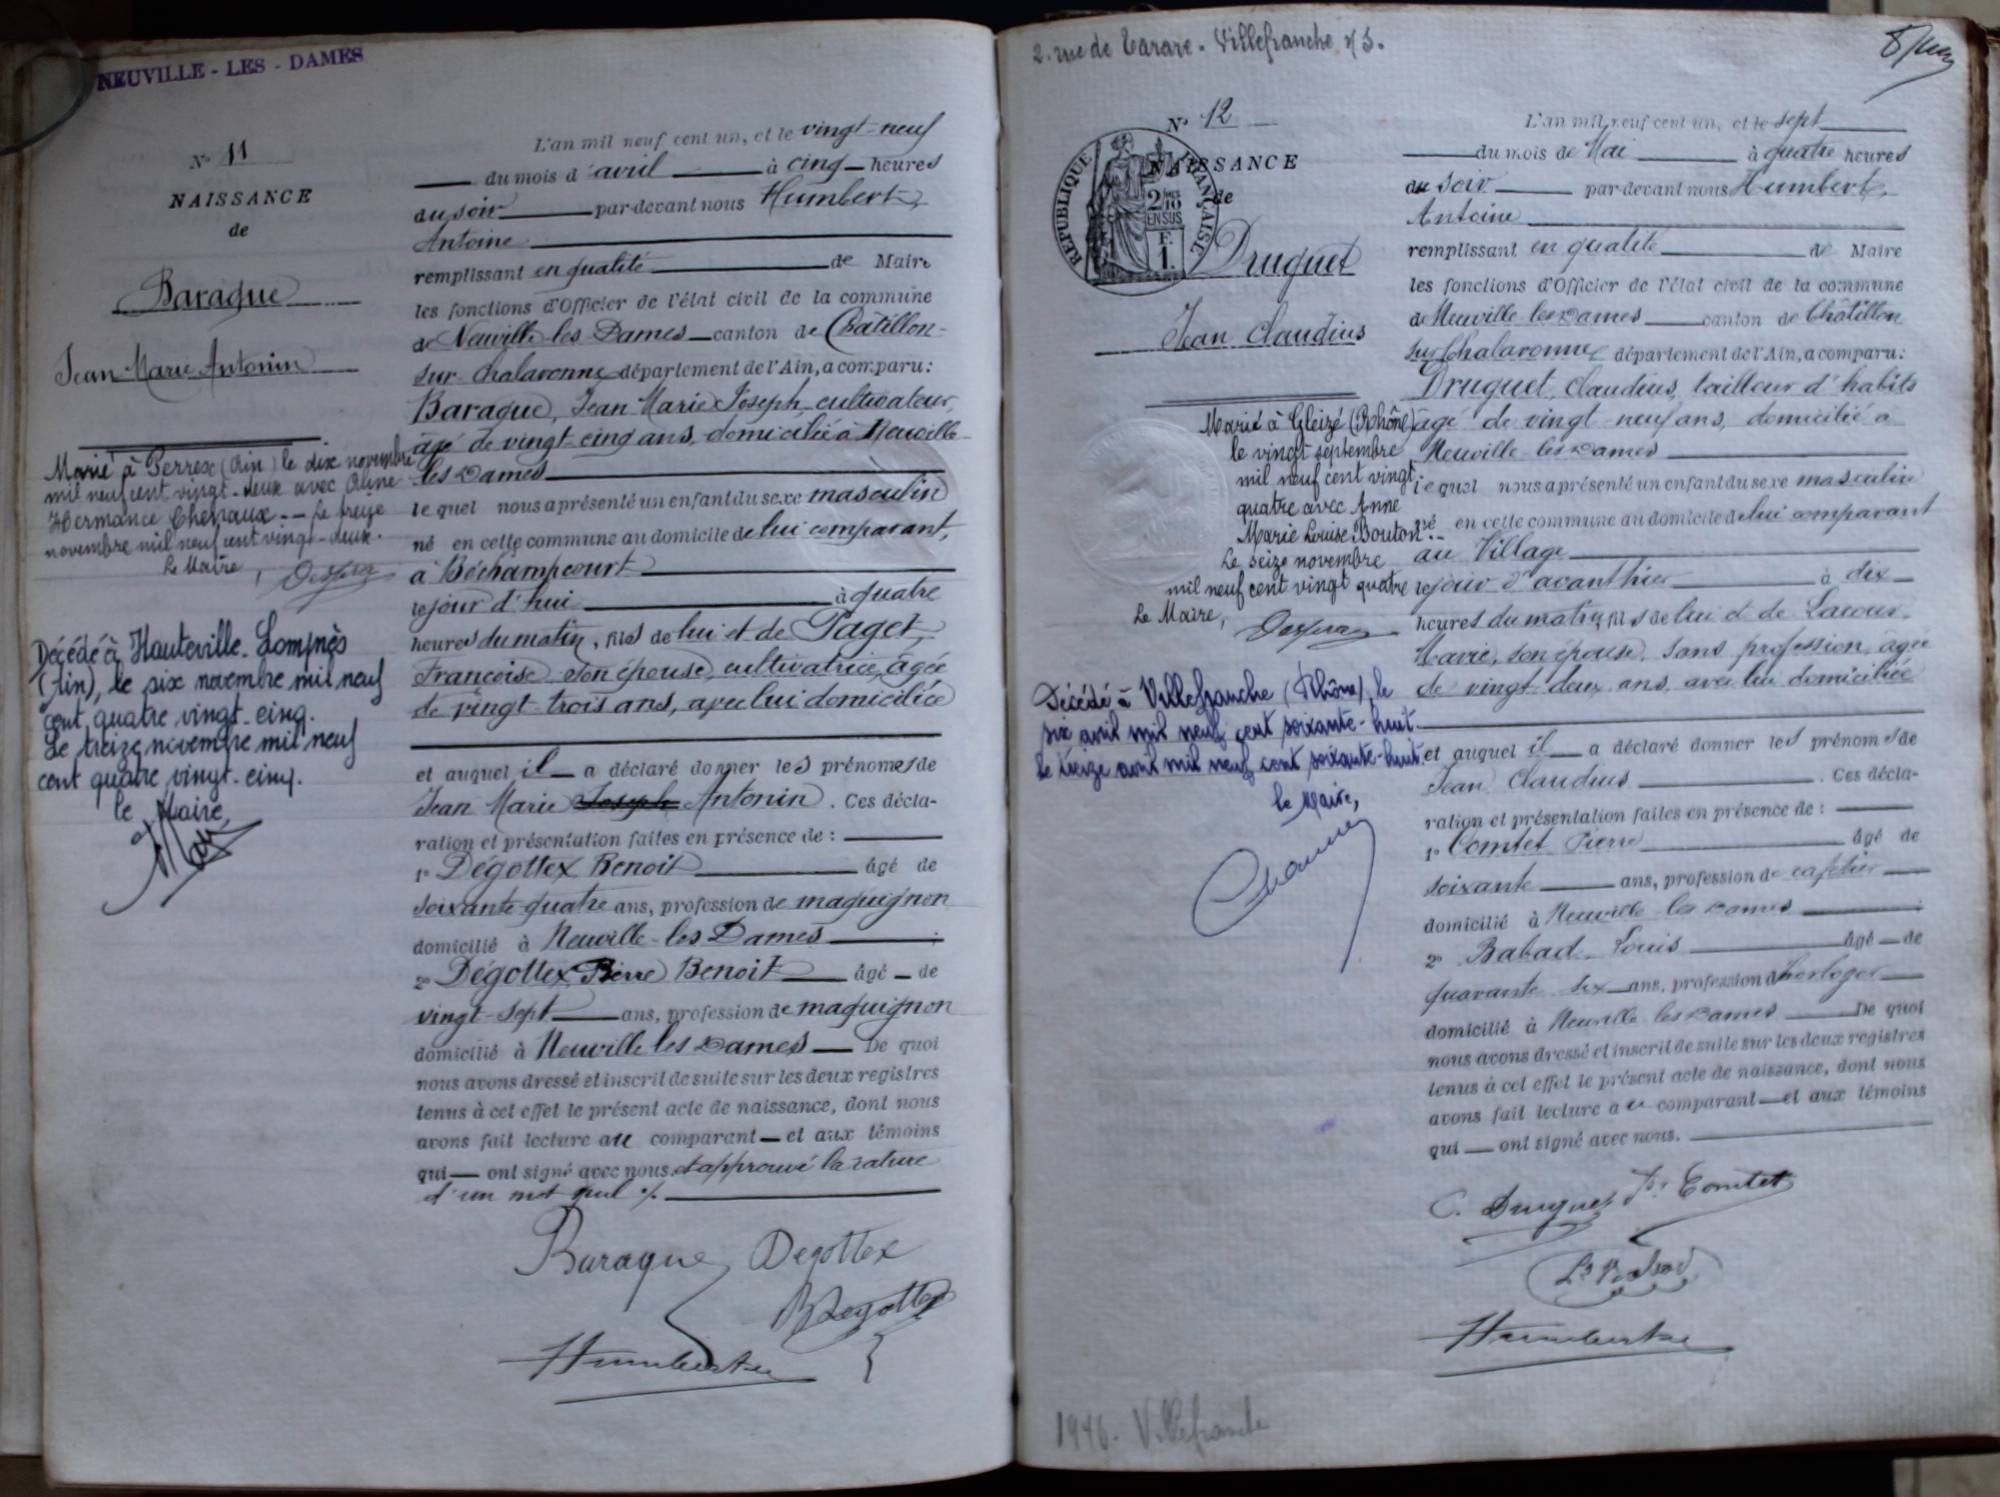 NEUVILLE - LES - DAMES
N° 11
NAISSANCE
de
Baraque
Jean Marie Antonin
Marié à Perrex (Ain) le dix novembre
mil neuf cent vingt-deux avec Aline
Hermance Chevaux. - Le treize
novembre mil neuf cent vingt-deux.
Le Maire,
Décédé à Hauteville-Lompnès
(Ain), le six novembre mil neuf
cent quatre vingt-cinq.
Le treize novembre mil neuf
cent quatre vingt-cinq.
le Maire,
L'an mil neuf cent un, et le vingt-neuf
du mois d'avril à cinq heures
du soir par-devant nous Humbert,
Antoine
remplissant en qualité de Maire
les fonctions d'Officier de l'état civil de la commune
de Neuville-les-Dames canton de Châtillon-
sur-Chalaronne, département de l'Ain, a comparu:
Baraque, Jean Marie Joseph, cultivateur,
âgé de vingt-cinq ans, domicilié à Neuville-
les-Dames
lequel nous a présenté un enfant du sexe masculin
né en cette commune au domicile de lui comparant,
à Béchampcourt
le jour d'hui à quatre
heures du matin, fils de lui et de Paget,
Françoise, son épouse, cultivatrice, âgée
de vingt-trois ans, avec lui domiciliée
et auquel il a déclaré donner les prénoms de
Jean Marie Joseph Antonin. Ces décla-
ration et présentation faites en présence de :
1° Dégottex Benoit âgé de
soixante-quatre ans, profession de maquignon
domicilié à Neuville-les-Dames ;
2° Dégottex Pierre Benoit âgé de
vingt-sept ans, profession de maquignon
domicilié à Neuville les Dames De quoi
nous avons dressé et inscrit de suite sur les deux registres
tenus à cet effet le présent acte de naissance, dont nous
avons fait lecture au comparant et aux témoins
qui ont signé avec nous et approuvé la rature
d'un mot nul ./.
Baraque Degottex
B Degottex
Humbert
2. rue de Tarare. Villefranche s/S.
N° 12
NAISSANCE
de
RÉPUBLIQUE FRANÇAISE
2/10
EN SUS
F.
1.
Druguet
Jean Claudius
Marié à Gleizé (Rhône)
le vingt septembre
mil neuf cent vingt
quatre avec Anne
Marie Louise Bouton.-
Le seize novembre
mil neuf cent vingt quatre
Le Maire,
Décédé à Villefranche (Rhône), le
six avril mil neuf cent soixante-huit
le treize avril mil neuf cent soixante-huit
le Maire,
L'an mil neuf cent un, et le sept
du mois de Mai à quatre heures
du soir par-devant nous Humbert,
Antoine
remplissant en qualité de Maire
les fonctions d'Officier de l'état civil de la commune
de Neuville-les-Dames canton de Châtillon
sur Chalaronne, département de l'Ain, a comparu:
Druguet, Claudius, tailleur d'habits
âgé de vingt-neuf ans, domicilié à
Neuville-les-Dames
lequel nous a présenté un enfant du sexe masculin
né en cette commune au domicile de lui comparant
au Village
le jour d'avant-hier à dix
heures du matin, fils de lui et de Lacour,
Marie, son épouse, sans profession, âgée
de vingt-deux ans, avec lui domiciliée
et auquel il a déclaré donner les prénoms de
Jean Claudius. Ces décla-
ration et présentation faites en présence de :
1° Comtet Pierre âgé de
soixante ans, profession de cafetier
domicilié à Neuville-les-Dames ;
2° Babad Louis âgé de
quarante-six ans, profession d'horloger
domicilié à Neuville-les-Dames De quoi
nous avons dressé et inscrit de suite sur les deux registres
tenus à cet effet le présent acte de naissance, dont nous
avons fait lecture au comparant et aux témoins
qui ont signé avec nous.
C. Druguet Comtet
Ls Babad
Humbert
1946. Villefranche